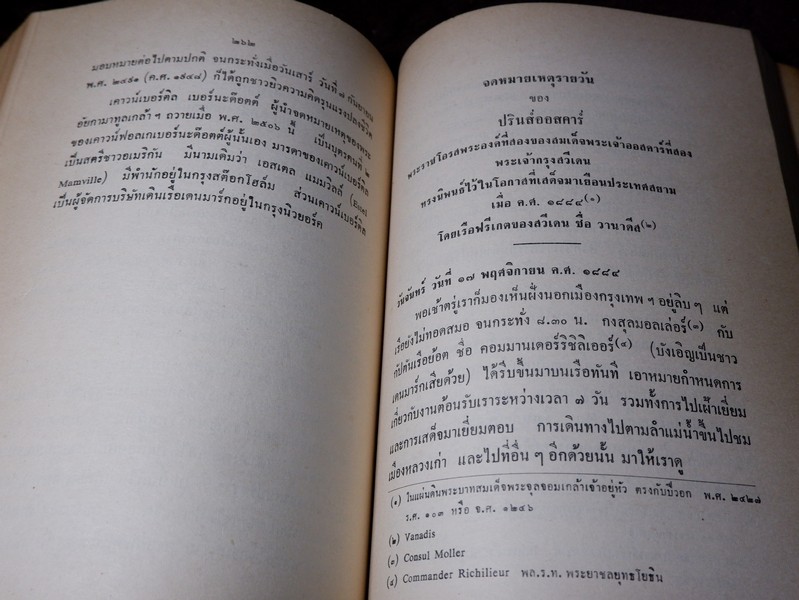 ๒๖๒
มอบหมายต่อไปตามปกติ จนกระทั่งเมื่อวันเสาร์ วันที่ ๗ กันยายน
พ.ศ. ๒๔๙๑ (ค.ศ. ๑๙๔๘) ก็ได้ถูกชาวยิวความคิดรุนแรงปลงชีวิต
เคาวน์เบอร์ติล เบอร์นะด๊อตต์ ผู้นำจดหมายเหตุของพระ
อัยกามาทูลเกล้าฯ ถวายเมื่อ พ.ศ. ๒๕๐๖ นี้ เป็นบุตรคนที่ ๒
ของเคาวน์ฟอลเกเบอร์นะด๊อตต์ผู้นั้นเอง มารดาของเคาวน์เบอร์ติล
เป็นสตรีชาวอเมริกัน มีนามเดิมว่า เอสเตล แมมวิลลี่ (Estel
Mamville) มีพำนักอยู่ในกรุงสต๊อกโฮล์ม ส่วนเคาวน์เบอร์ติล
เป็นผู้จัดการบริษัทเดินเรือเดนมาร์กอยู่ในกรุงนิวยอร์ค
จดหมายเหตุรายวัน
ของ
ปรินส์ออสคาร์
พระราชโอรสพระองค์ที่สองของสมเด็จพระเจ้าออสคาร์ที่สอง
พระเจ้ากรุงสวีเดน
ทรงนิพนธ์ไว้ในโอกาสที่เสด็จมาเยือนประเทศสยาม
เมื่อ ค.ศ. ๑๘๘๔(๑)
โดยเรือฟรีเกตของสวีเดน ชื่อ วานาดีส(๒)
วันจันทร์ วันที่ ๑๗ พฤศจิกายน ค.ศ. ๑๘๘๔
พอเช้าตรู่เราก็มองเห็นฝั่งนอกเมืองกรุงเทพ ฯ อยู่ลิบ ๆ แต่
เรือยังไม่ทอดสมอ จนกระทั่ง ๘.๓๐ น. กงสุลมอลเล่อร์(๓) กับ
กัปตันเรือย๊อต ชื่อ คอมมานเดอร์ริชิลิเออร์(๔) (บังเอิญเป็นชาว
เดนมาร์กเสียด้วย) ได้รีบขึ้นมาบนเรือทันที เอาหมายกำหนดการ
เกี่ยวกับงานต้อนรับเราระหว่างเวลา ๗ วัน รวมทั้งการไปเฝ้าเยี่ยม
และการเสด็จมาเยี่ยมตอบ การเดินทางไปตามลำแม่น้ำขึ้นไปชม
เมืองหลวงเก่า และไปที่อื่น ๆ อีกด้วยนั้น มาให้เราดู
(๑) ในแผ่นดินพระบาทสมเด็จพระจุลจอมเกล้าเจ้าอยู่หัว ตรงกับปีวอก พ.ศ. ๒๔๒๗
ร.ศ. ๑๐๓ หรือ จ.ศ. ๑๒๔๖
(๒) Vanadis
(๓) Consul Moller
(๔) Commander Richilieur พล.ร.ท. พระยาชลยุทธโยธิน